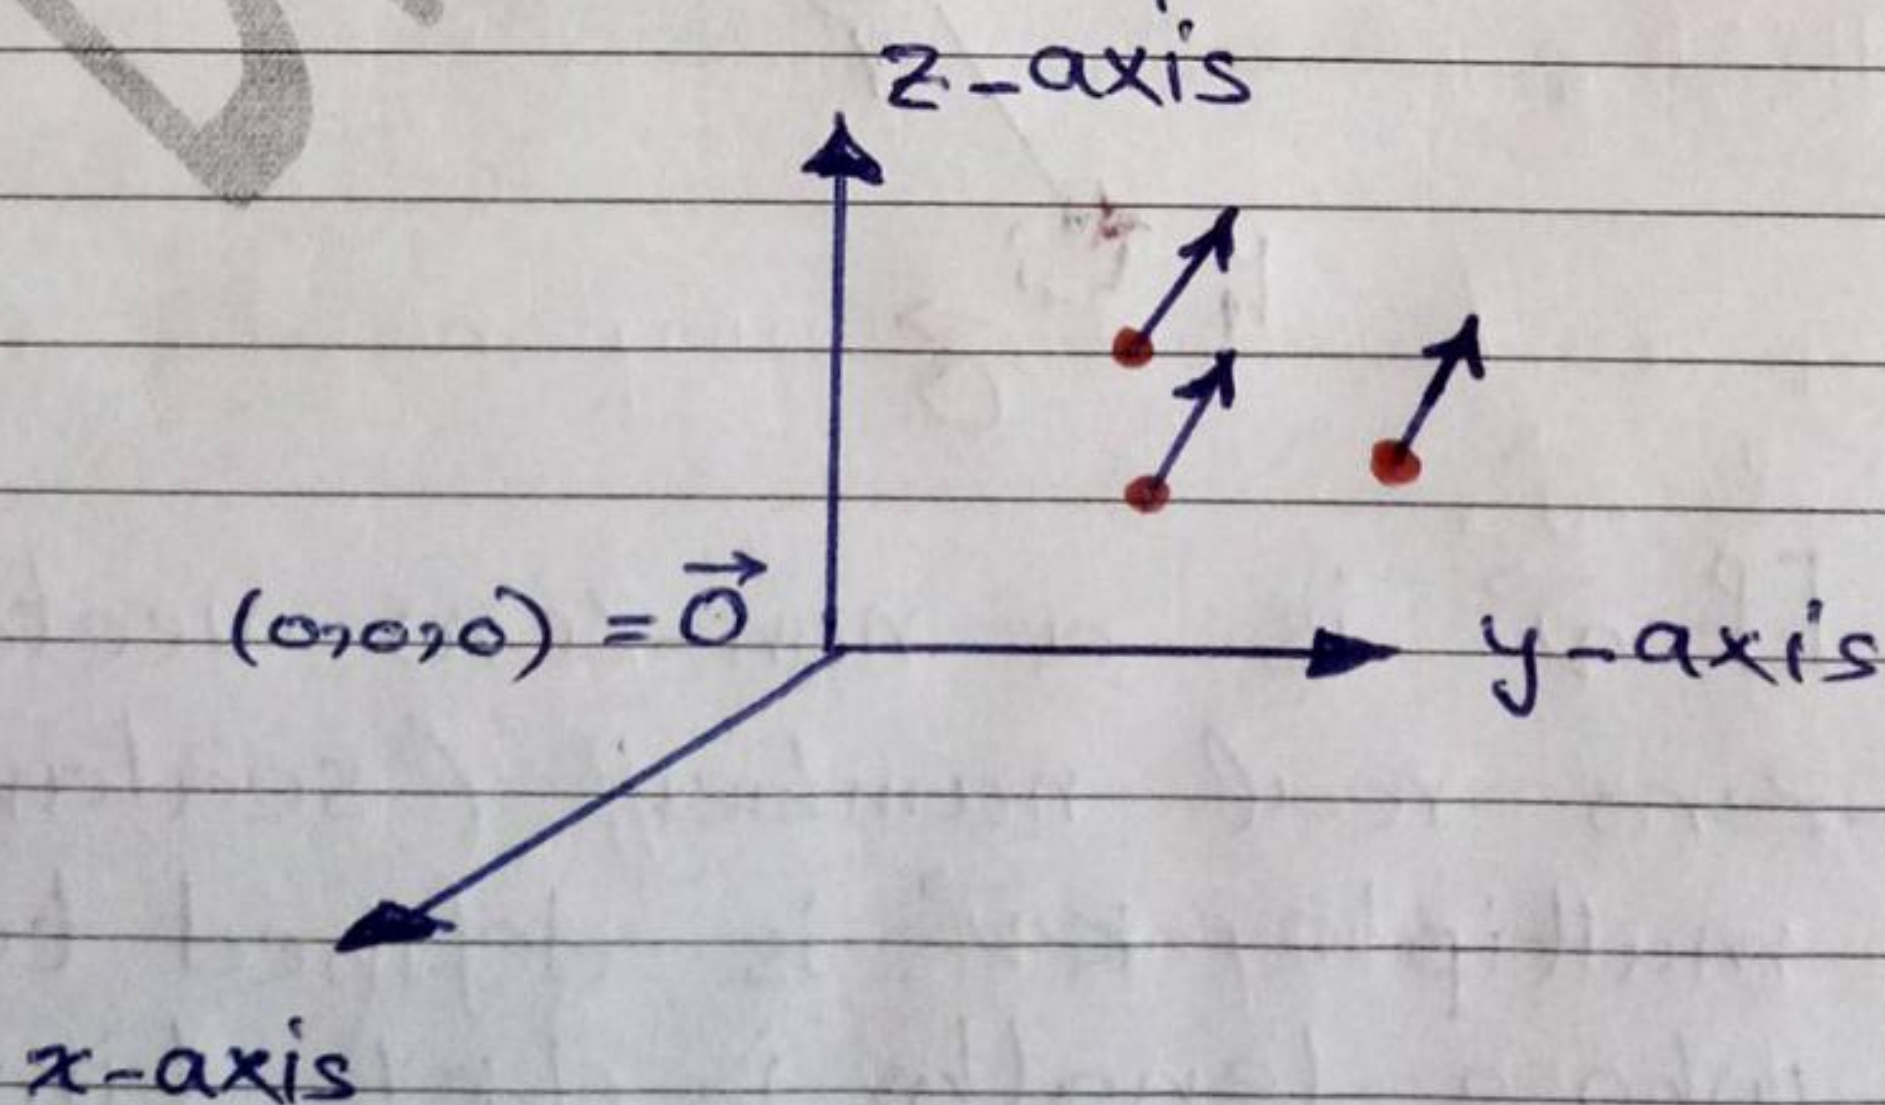 z-axis
(0,0,0) = \vec{0}
y-axis
x-axis